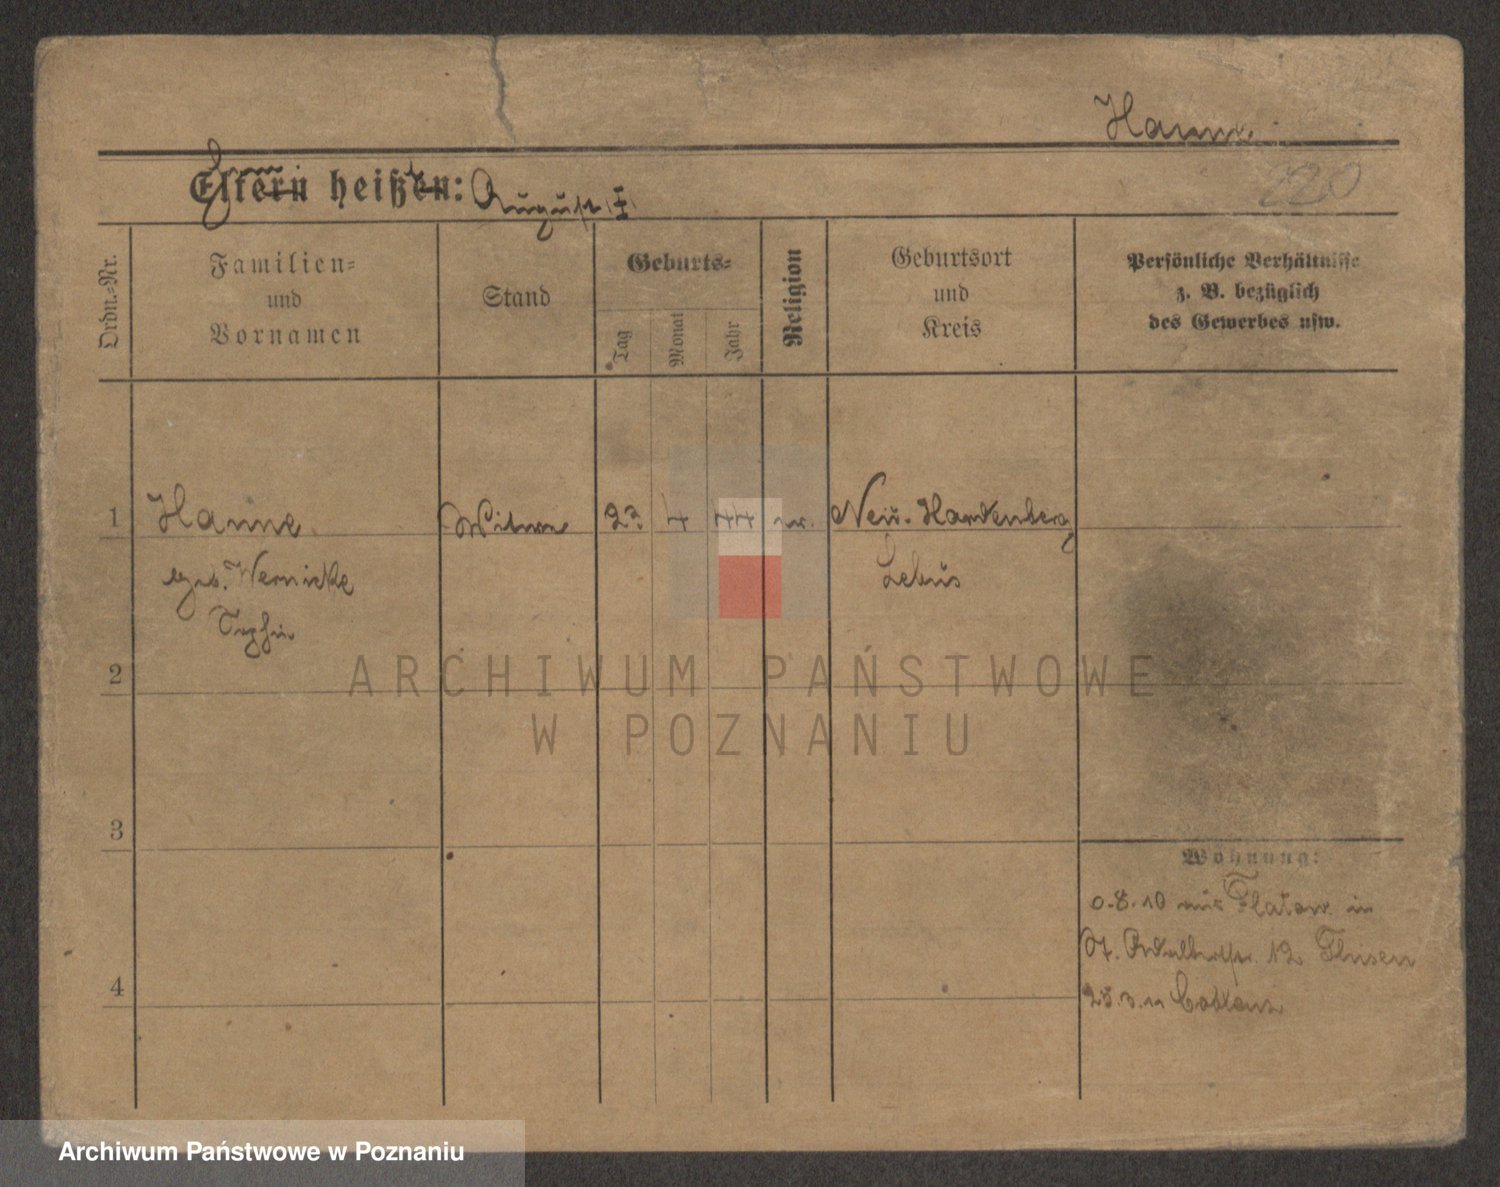 Hanne
220
Eltern heißen: August I
Ordn.-Nr.
Familien-
und
Vornamen
Stand
Geburts-
Tag
Monat
Jahr
Religion
Geburtsort
und
Kreis
Persönliche Verhältnisse
z. B. bezüglich
des Gewerbes usw.
1 Hanne Witwe 22 4 44 ev. Neu-Hardenberg
geb. Wernicke Lebus
Sophie
2
3
4
Wohnung:
8.10 aus Flatow in
St. Adalbertstr. 12
ARCHIWUM PAŃSTWOWE
W POZNANIU
Archiwum Państwowe w Poznaniu